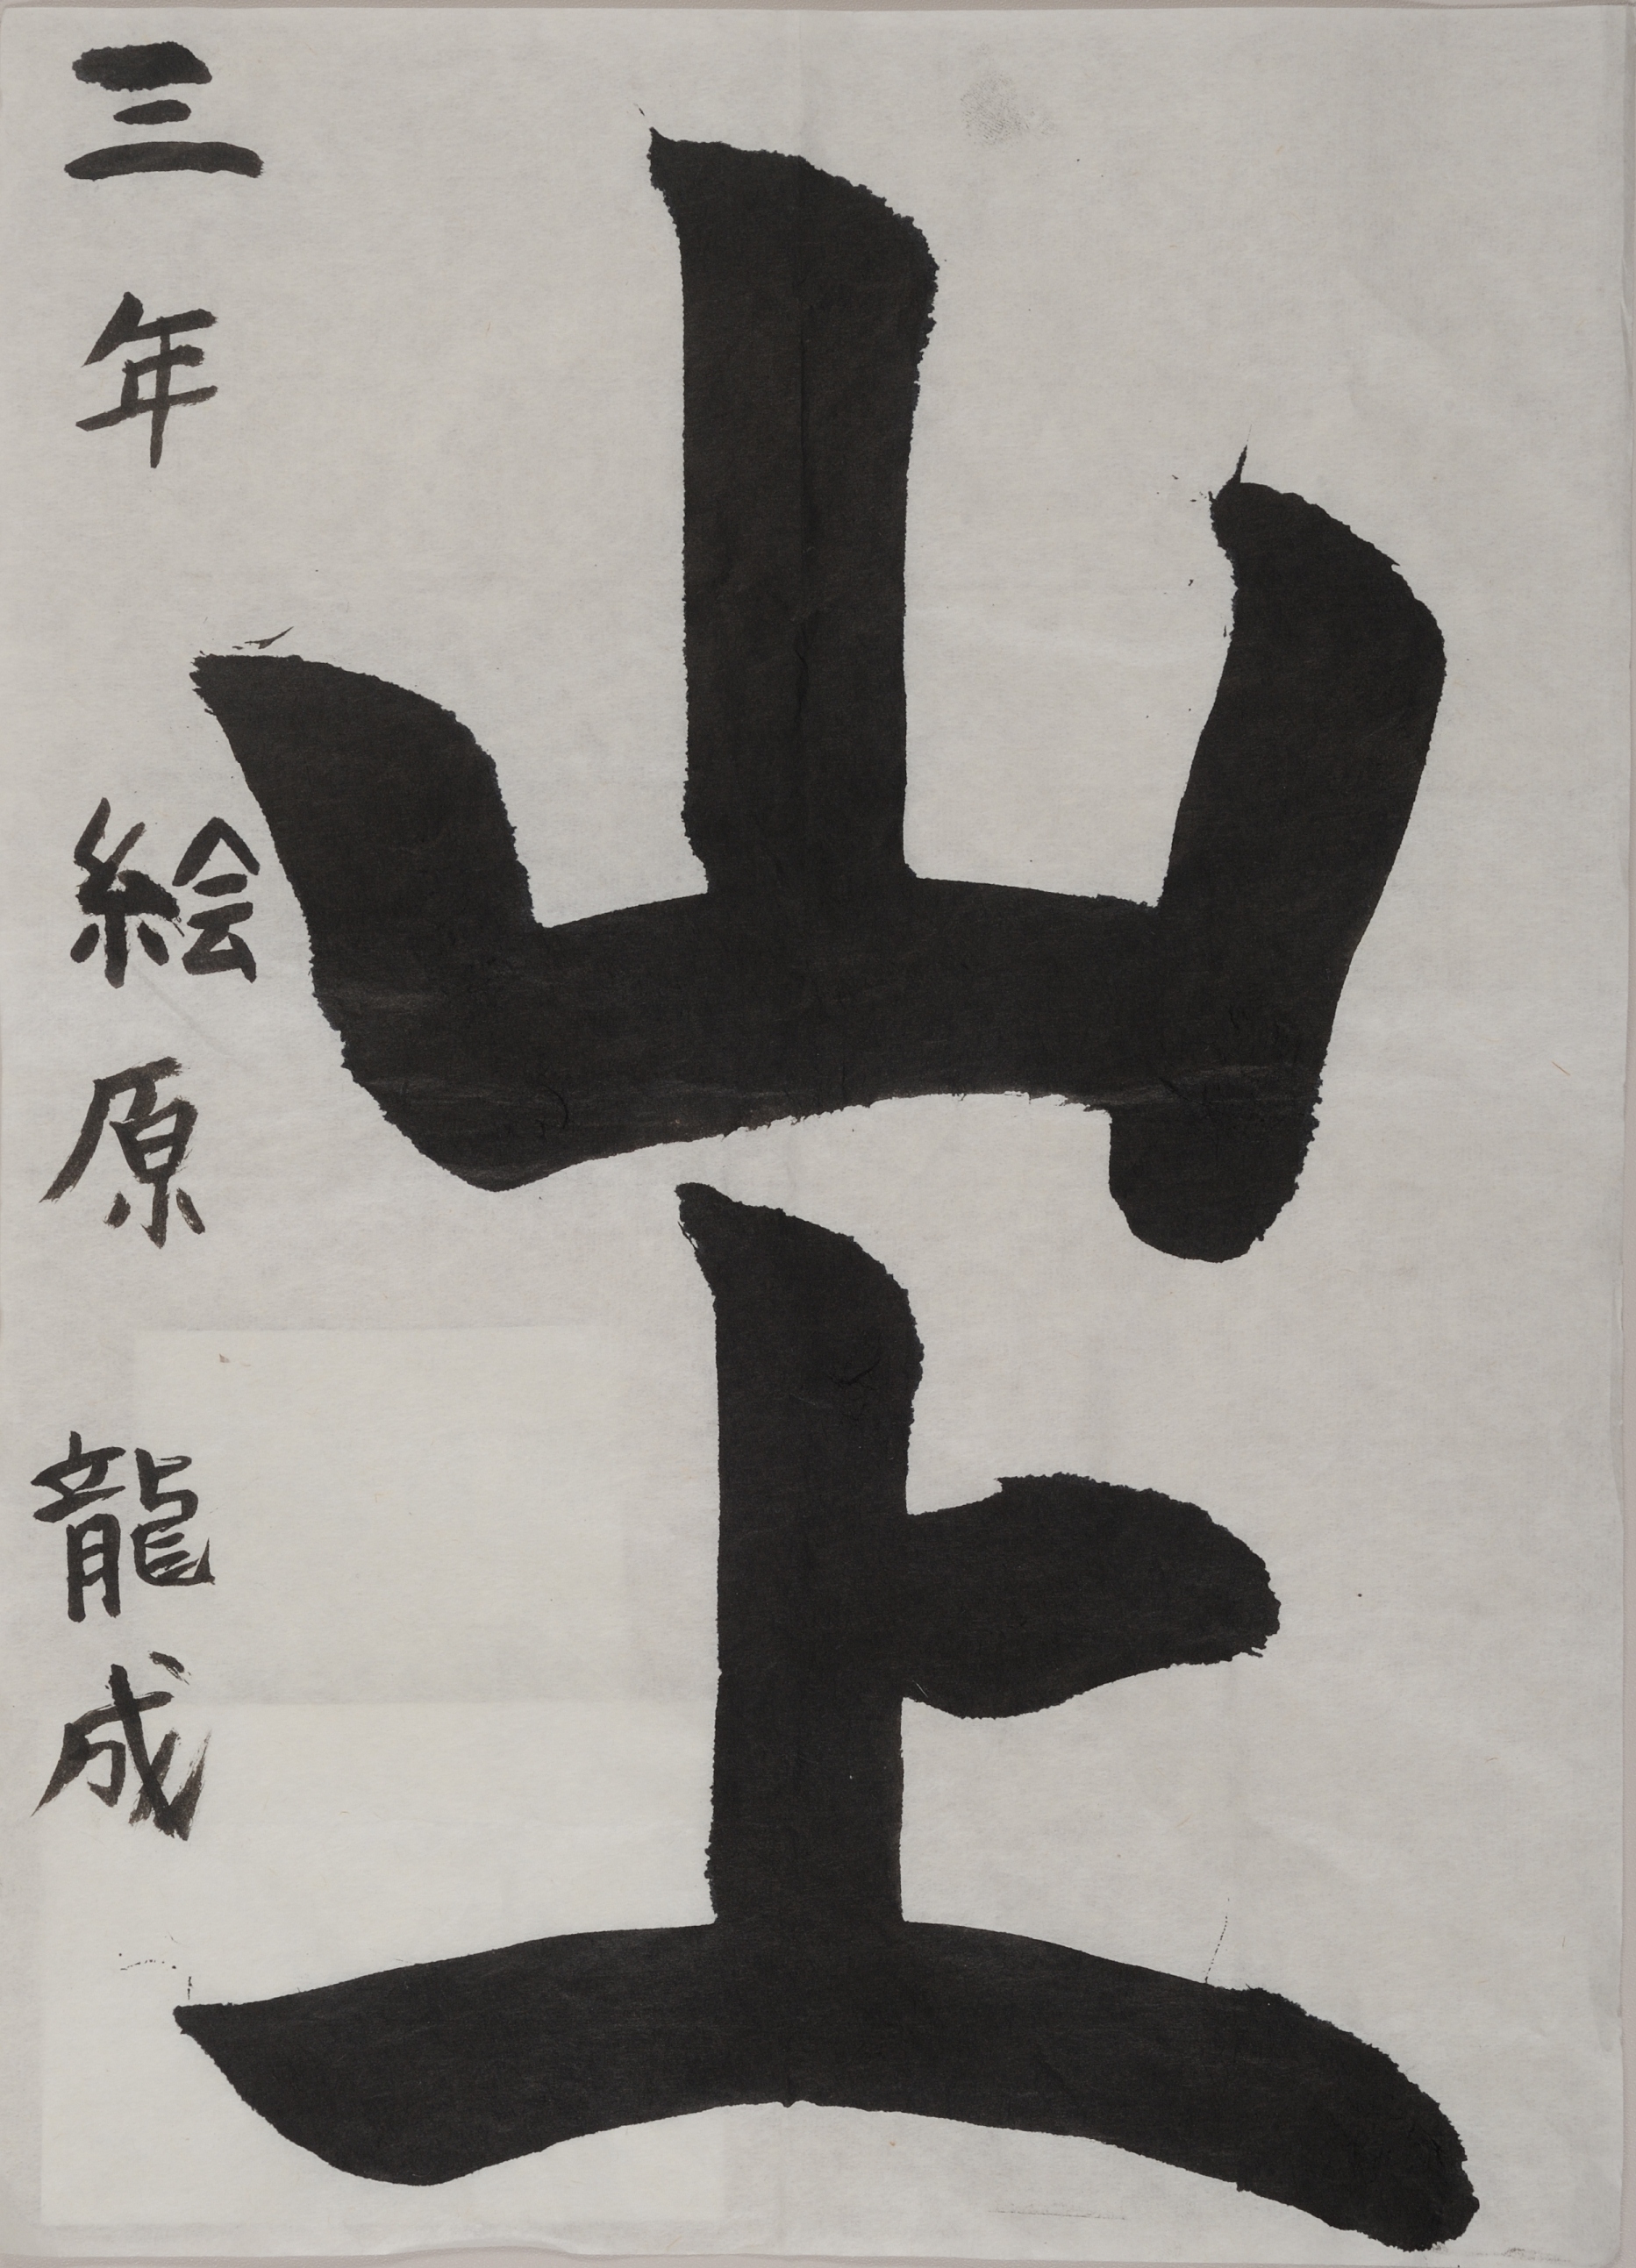 山上
三年 絵原 龍成